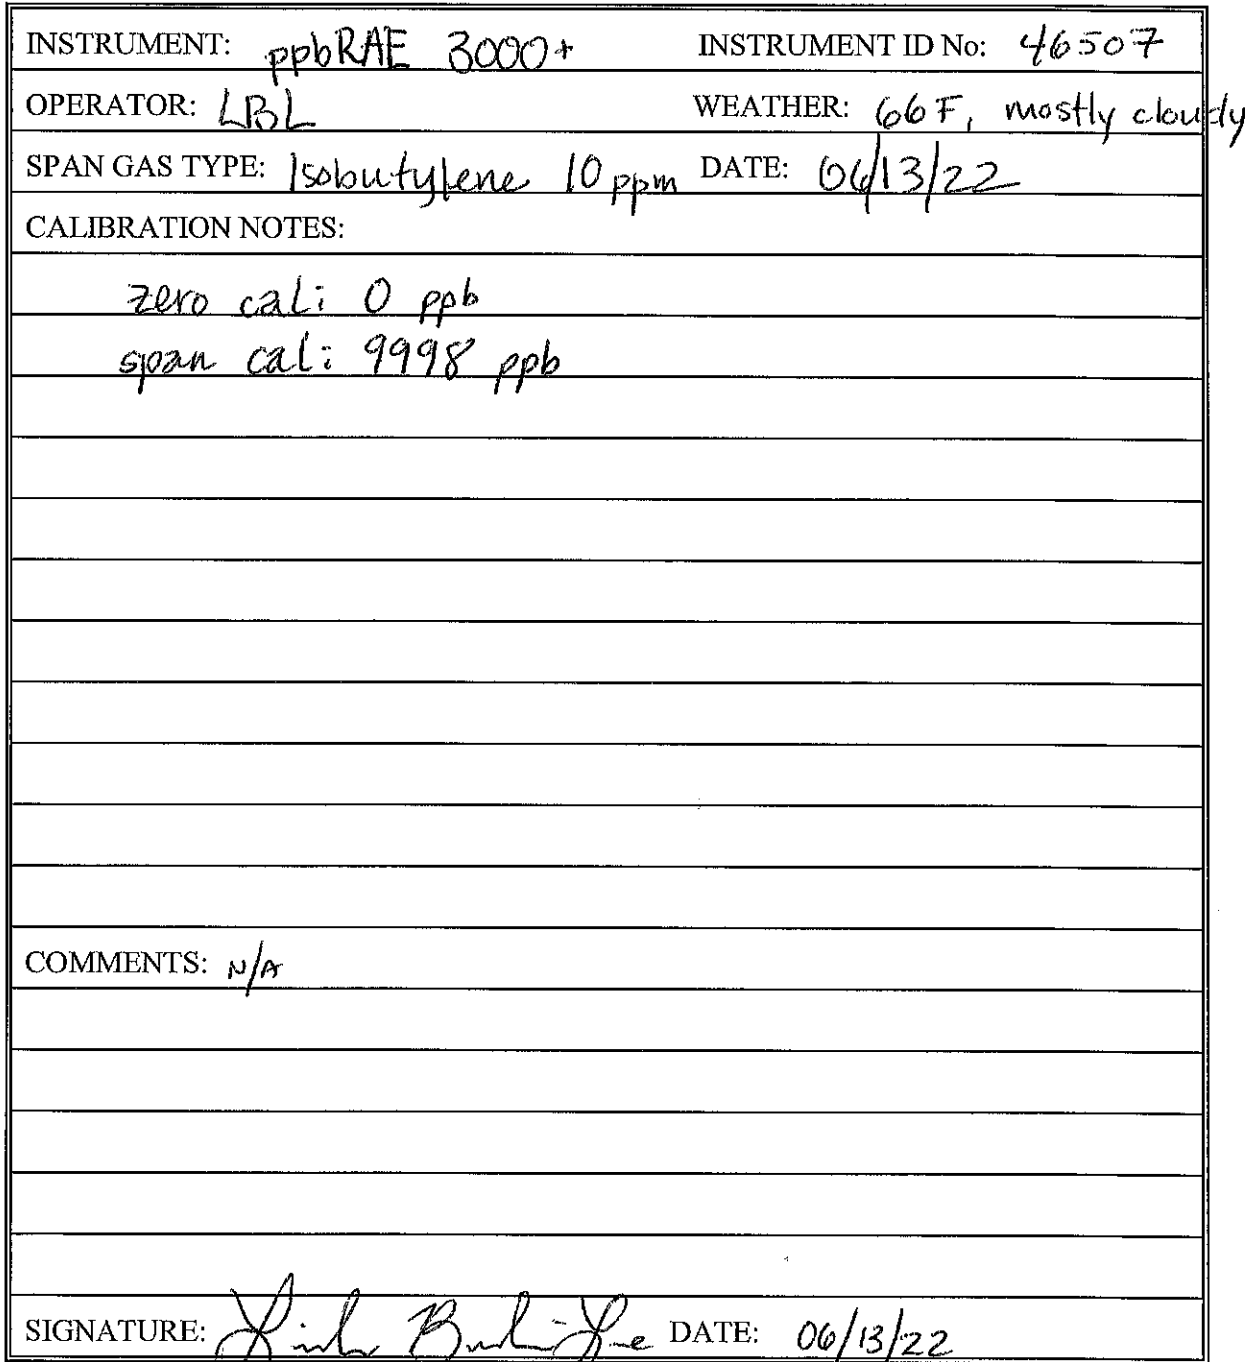 INSTRUMENT: ppbRAE 3000+ INSTRUMENT ID No: 46507
OPERATOR: LBL WEATHER: 66 F, mostly cloudy
SPAN GAS TYPE: Isobutylene 10 ppm DATE: 06/13/22
CALIBRATION NOTES:
zero cal: 0 ppb
span cal: 9998 ppb
COMMENTS: N/A
SIGNATURE: DATE: 06/13/22